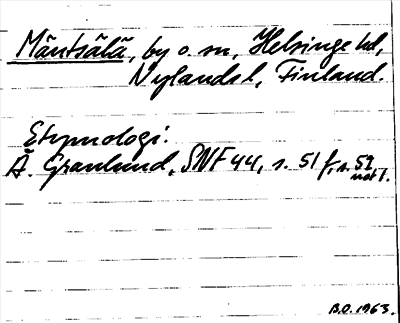 Mäntsälä, by o. sn, Helsinge hd,
Nylands l, Finland.
Etymologi.
Å. Granlund, SNF 44, s. 51 f, s. 52
not 1.
B.O. 1963.